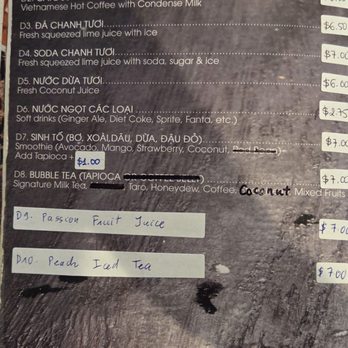 Vietnamese Hot Coffee with Condense Milk
D3. ĐÁ CHANH TƯƠI $6.50
Fresh squeezed lime juice with ice
D4. SODA CHANH TƯƠI $7.00
Fresh squeezed lime juice with soda, sugar & ice
D5. NƯỚC DỪA TƯƠI $6.00
Fresh coconut juice
D6. NƯỚC NGỌT CÁC LOẠI $2.75
Soft drinks (Ginger Ale, Diet Coke, Sprite, Fanta, etc.)
D7. SINH TỐ (BƠ, XOÀI, DÂU, DỪA, ĐẬU ĐỎ) $7.00
Smoothie (Avocado, Mango, Strawberry, Coconut, Red Bean)
Add Tapioca + $1.00
D8. BUBBLE TEA (TAPIOCA OR COFFEE JELLY) $7.00
Signature Milk Tea, Taro, Honeydew, Coffee, Coconut Mixed Fruits
D9. Passion Fruit Juice $7.00
D10. Peach Iced Tea $7.00